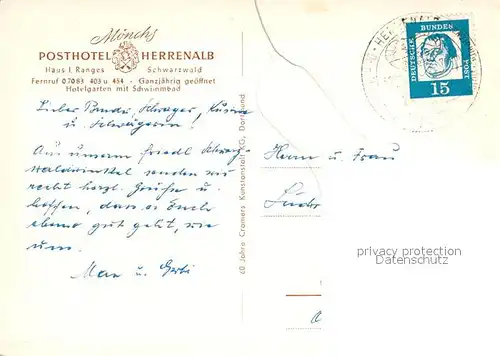 Mönchs
POSTHOTEL HERRENALB
Haus I. Ranges Schwarzwald
Fernruf 07083 403 u. 454 - Ganzjährig geöffnet
Hotelgarten mit Schwimmbad
Lieber Bruder, Schwager,
u. Schwägerin!
Aus unserem friedl. Schwarz-
waldwinkel senden wir
recht herzl. Grüße u.
hoffen, dass es Euch
ebenso gut geht, wie
uns.
Max u.
40 Jahre Cramers Kunstanstalt KG, Dortmund
HERRENALB
DEUTSCHE BUNDESPOST
15
Herrn u. Frau
privacy protection
Datenschutz